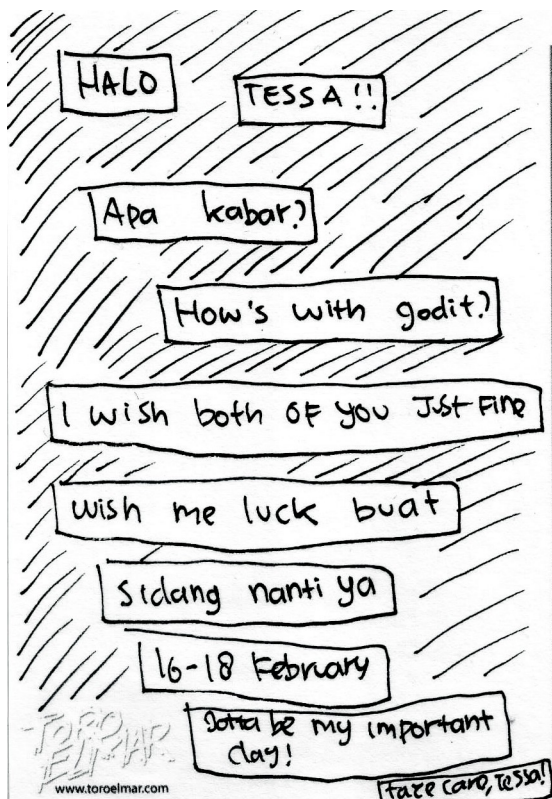 HALO
TESSA!!
Apa kabar?
How's with godit?
I wish both of you Just Fine
wish me luck buat
sidang nanti ya
16-18 February
Gotta be my important
day!
take care, Tessa!
TORO
ELMAR
www.toroelmar.com